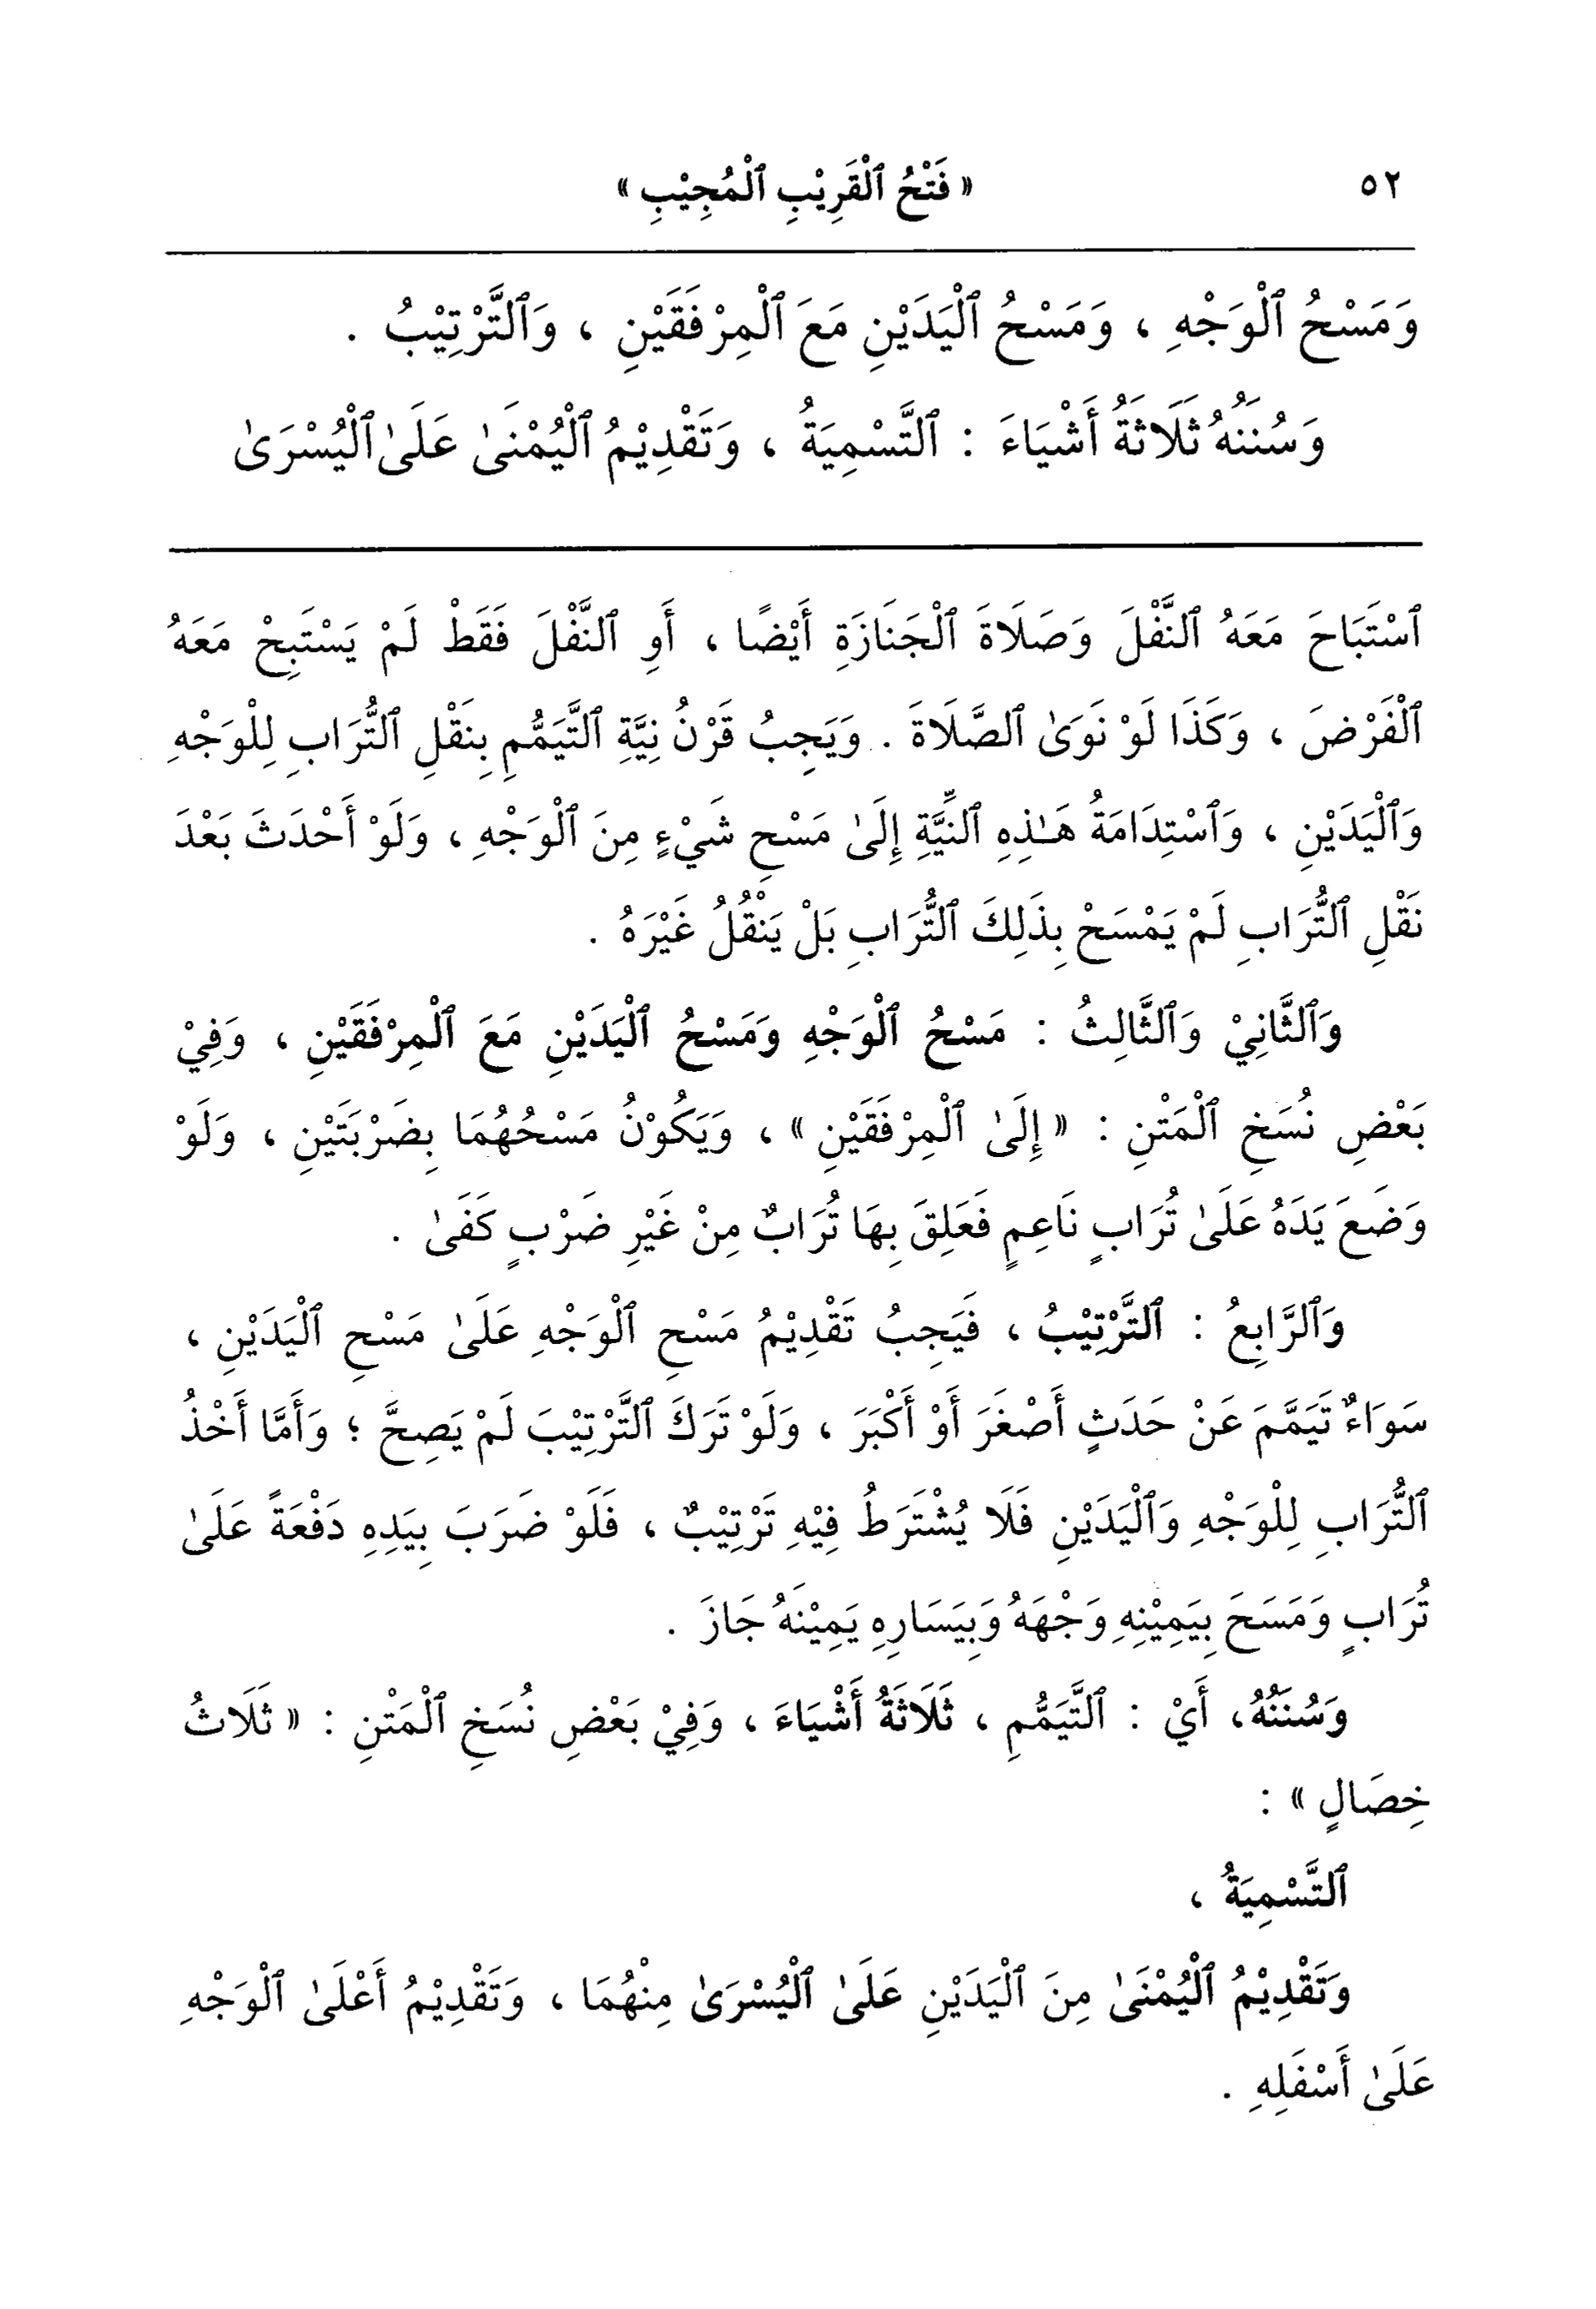 ٥٢ « فَتْحُ ٱلْقَرِيْبِ ٱلْمُجِيْبِ »
وَمَسْحُ ٱلْوَجْهِ ، وَمَسْحُ ٱلْيَدَيْنِ مَعَ ٱلْمِرْفَقَيْنِ ، وَٱلتَّرْتِيْبُ .
وَسُنَنُهُ ثَلَاثَةُ أَشْيَاءَ : ٱلتَّسْمِيَةُ ، وَتَقْدِيْمُ ٱلْيُمْنَىٰ عَلَىٰ ٱلْيُسْرَىٰ
ٱسْتَبَاحَ مَعَهُ ٱلنَّفْلَ وَصَلَاةَ ٱلْجَنَازَةِ أَيْضًا ، أَوِ ٱلنَّفْلَ فَقَطْ لَمْ يَسْتَبِحْ مَعَهُ
ٱلْفَرْضَ ، وَكَذَا لَوْ نَوَىٰ ٱلصَّلَاةَ . وَيَجِبُ قَرْنُ نِيَّةِ ٱلتَّيَمُّمِ بِنَقْلِ ٱلتُّرَابِ لِلْوَجْهِ
وَٱلْيَدَيْنِ ، وَٱسْتِدَامَةُ هَـٰذِهِ ٱلنِّيَّةِ إِلَىٰ مَسْحِ شَيْءٍ مِنَ ٱلْوَجْهِ ، وَلَوْ أَحْدَثَ بَعْدَ
نَقْلِ ٱلتُّرَابِ لَمْ يَمْسَحْ بِذَلِكَ ٱلتُّرَابِ بَلْ يَنْقُلُ غَيْرَهُ .
وَٱلثَّانِيْ وَٱلثَّالِثُ : مَسْحُ ٱلْوَجْهِ وَمَسْحُ ٱلْيَدَيْنِ مَعَ ٱلْمِرْفَقَيْنِ ، وَفِيْ
بَعْضِ نُسَخِ ٱلْمَتْنِ : « إِلَىٰ ٱلْمِرْفَقَيْنِ » ، وَيَكُوْنُ مَسْحُهُمَا بِضَرْبَتَيْنِ ، وَلَوْ
وَضَعَ يَدَهُ عَلَىٰ تُرَابٍ نَاعِمٍ فَعَلِقَ بِهَا تُرَابٌ مِنْ غَيْرِ ضَرْبٍ كَفَىٰ .
وَٱلرَّابِعُ : ٱلتَّرْتِيْبُ ، فَيَجِبُ تَقْدِيْمُ مَسْحِ ٱلْوَجْهِ عَلَىٰ مَسْحِ ٱلْيَدَيْنِ ،
سَوَاءٌ تَيَمَّمَ عَنْ حَدَثٍ أَصْغَرَ أَوْ أَكْبَرَ ، وَلَوْ تَرَكَ ٱلتَّرْتِيْبَ لَمْ يَصِحَّ ؛ وَأَمَّا أَخْذُ
ٱلتُّرَابِ لِلْوَجْهِ وَٱلْيَدَيْنِ فَلَا يُشْتَرَطُ فِيْهِ تَرْتِيْبٌ ، فَلَوْ ضَرَبَ بِيَدِهِ دَفْعَةً عَلَىٰ
تُرَابٍ وَمَسَحَ بِيَمِيْنِهِ وَجْهَهُ وَبِيَسَارِهِ يَمِيْنَهُ جَازَ .
وَسُنَنُهُ، أَيْ : ٱلتَّيَمُّمِ ، ثَلَاثَةُ أَشْيَاءَ ، وَفِيْ بَعْضِ نُسَخِ ٱلْمَتْنِ : « ثَلَاثُ
خِصَالٍ » :
ٱلتَّسْمِيَةُ ،
وَتَقْدِيْمُ ٱلْيُمْنَىٰ مِنَ ٱلْيَدَيْنِ عَلَىٰ ٱلْيُسْرَىٰ مِنْهُمَا ، وَتَقْدِيْمُ أَعْلَىٰ ٱلْوَجْهِ
عَلَىٰ أَسْفَلِهِ .